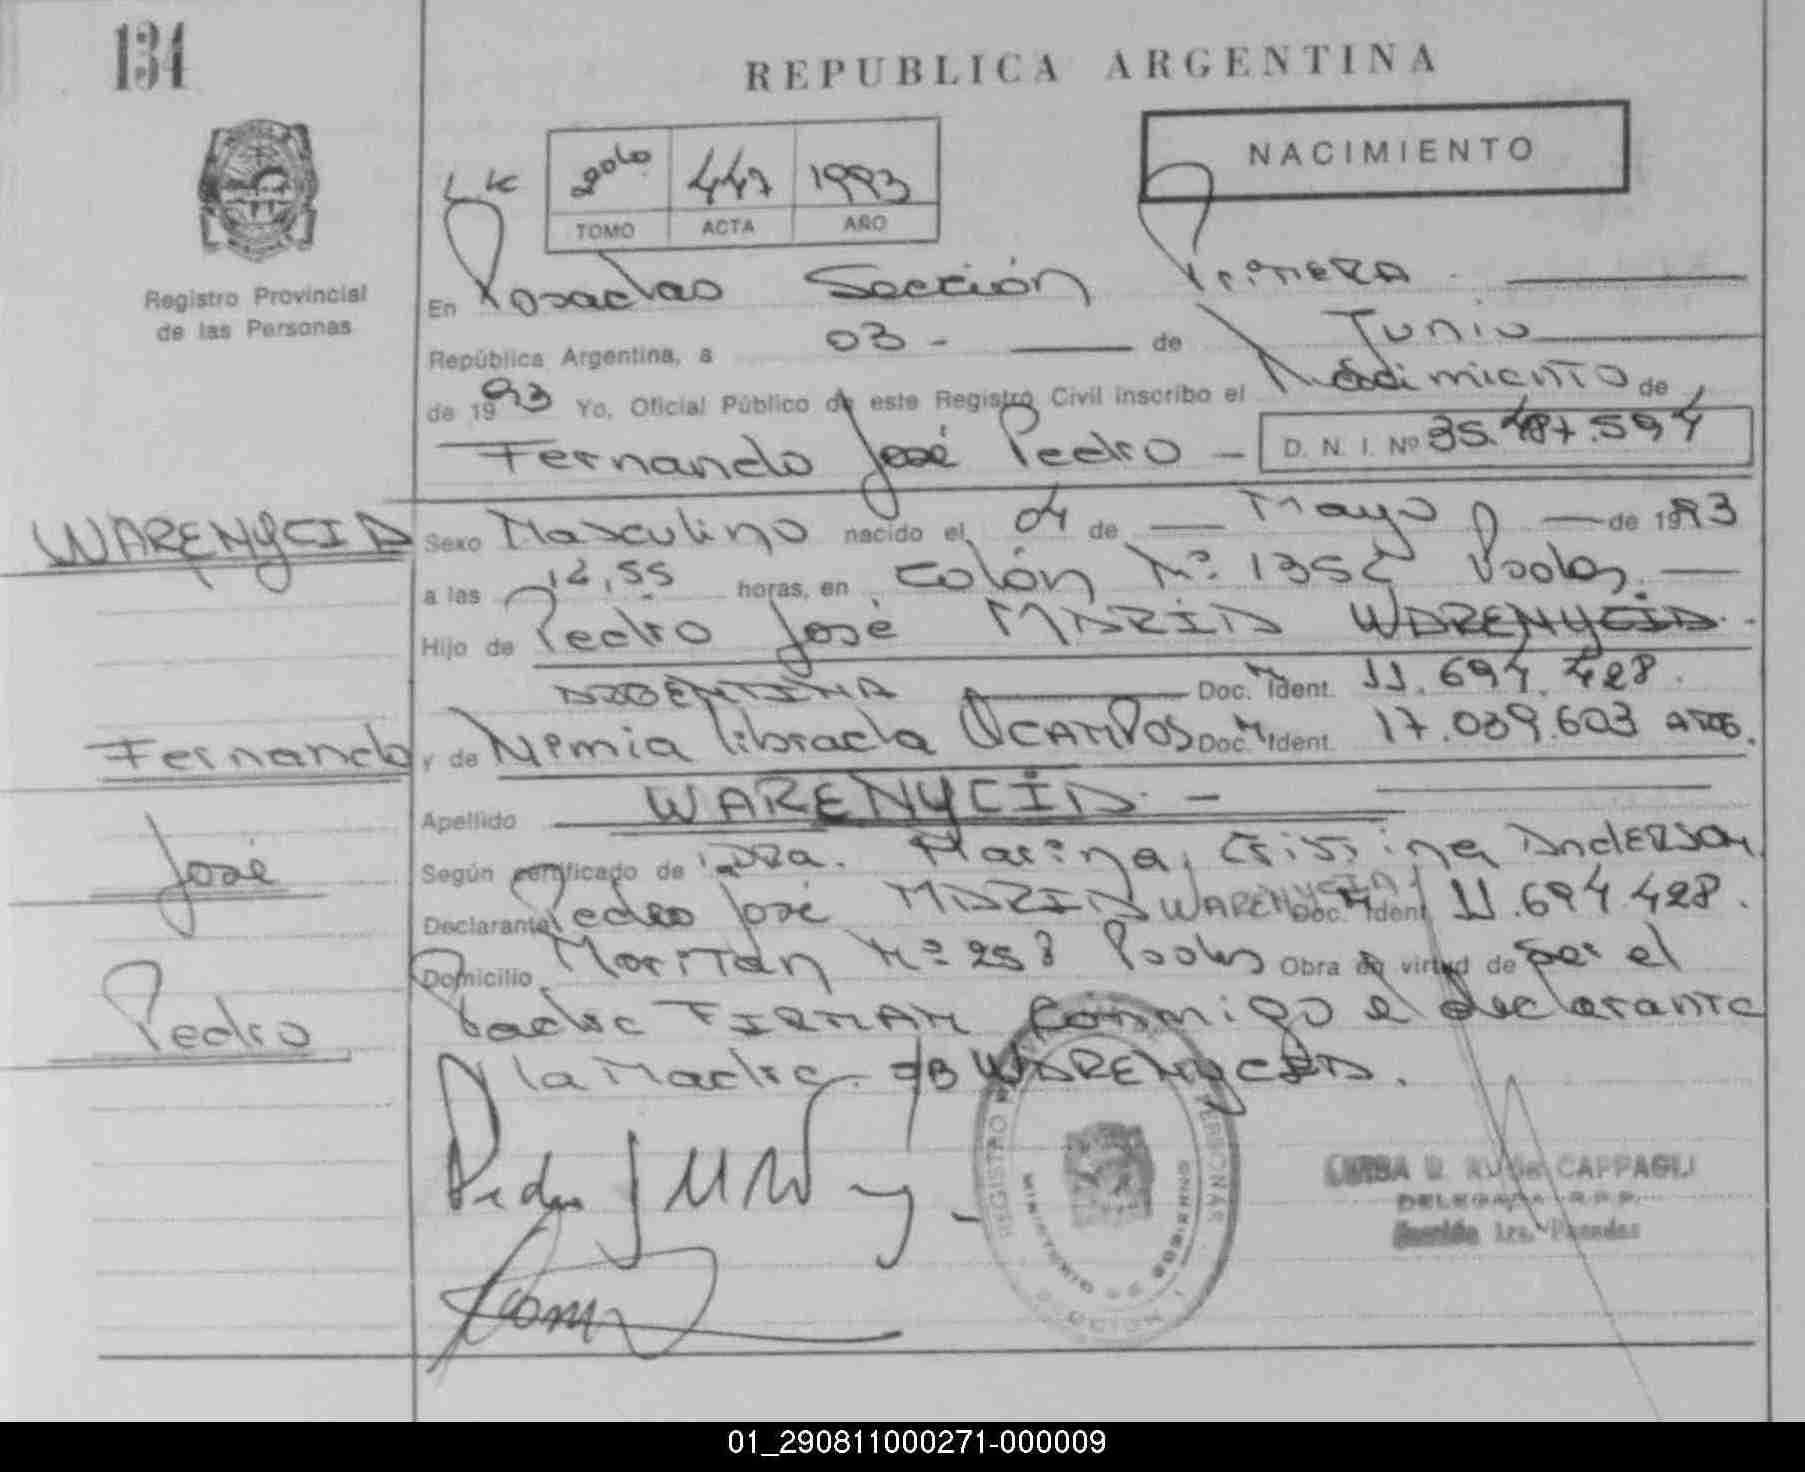 134
REPUBLICA ARGENTINA
NACIMIENTO
447 1993
TOMO ACTA AÑO
Registro Provincial
de las Personas
En Posadas Sección Primera
República Argentina, a 03 - de Junio
de 1993 Yo, Oficial Público de este Registro Civil inscribo el Nacimiento de
Fernando José Pedro - D. N. I. Nº 35.487.594
WARENYCIA
Sexo Masculino nacido el 04 de Mayo de 1993
a las 12,55 horas, en Colón Nº 1352 Psdas.
Hijo de Pedro José MARIA WARENYCIA.
ARGENTINA Doc. Ident. 11.694.428.
Fernando
y de Nimia librada OCAMPOS Doc. Ident. 17.039.603 ARG.
Apellido WARENYCIA. -
José
Según certificado de Dra. Marina Cristina Anderson
Declarante Pedro José MARIA WARENYCIA Doc. Ident 11.694.428.
Domicilio Moritán Nº 258 Psdas Obra en virtud de Ser el
Pedro
Padre FIRMAN Conmigo el declarante
la Madre. WARENYCIA.
REGISTRO
CAPPAGLI
DELEGADA R.P.P.
Sección 1ra. Posadas
01_290811000271-000009